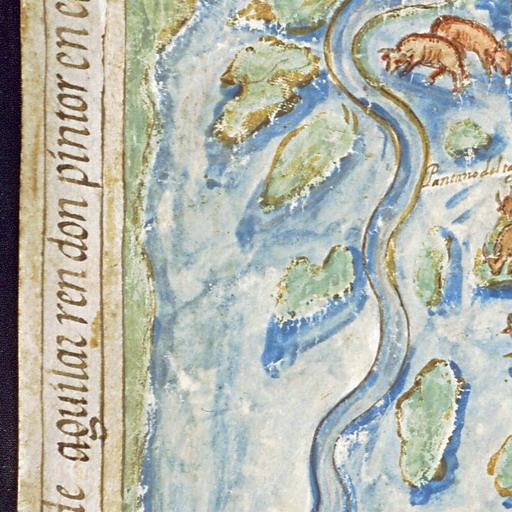 de aguilar ren don pintor en c
Pantano del